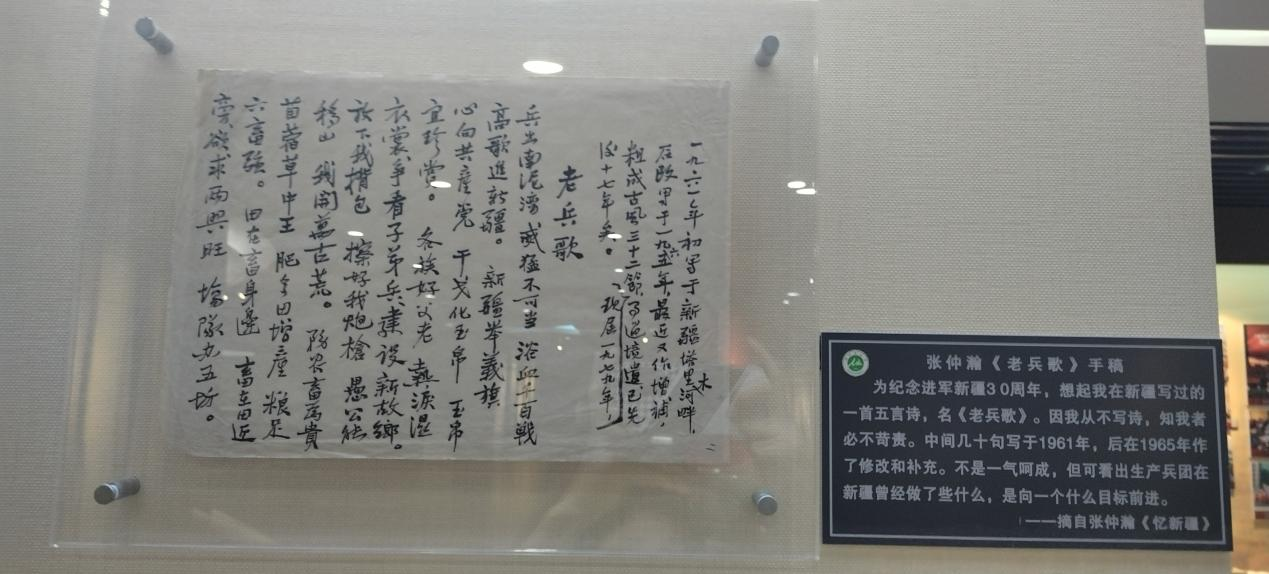 一九六一年初写于新疆塔里木河畔,
改写于一九六五年,最近又作增補,
粗成古風三十二節
十七年矣。
老兵歌
兵出南泥湾 威猛不可当 浴血千百戰
高歌進新疆。 新疆举義旗
心向共産党 干戈化玉帛 玉帛
宜珍赏。 各族好父老 熱淚湿
衣裳 争看子弟兵 建設新故鄉。
放下我揹包 擦好我炮槍 愚公能
移山 我開萬古荒。 畜為貴
苜蓿草中王 肥多田增產 粮足
六畜強。 田在畜身邊 畜在田近
旁 欲求兩興旺
张仲瀚《老兵歌》手稿
为纪念进军新疆30周年，想起我在新疆写过的
一首五言诗，名《老兵歌》。因我从不写诗，知我者
必不苛责。中间几十句写于1961年，后在1965年作
了修改和补充。不是一气呵成，但可看出生产兵团在
新疆曾经做了些什么，是向一个什么目标前进。
——摘自张仲瀚《忆新疆》